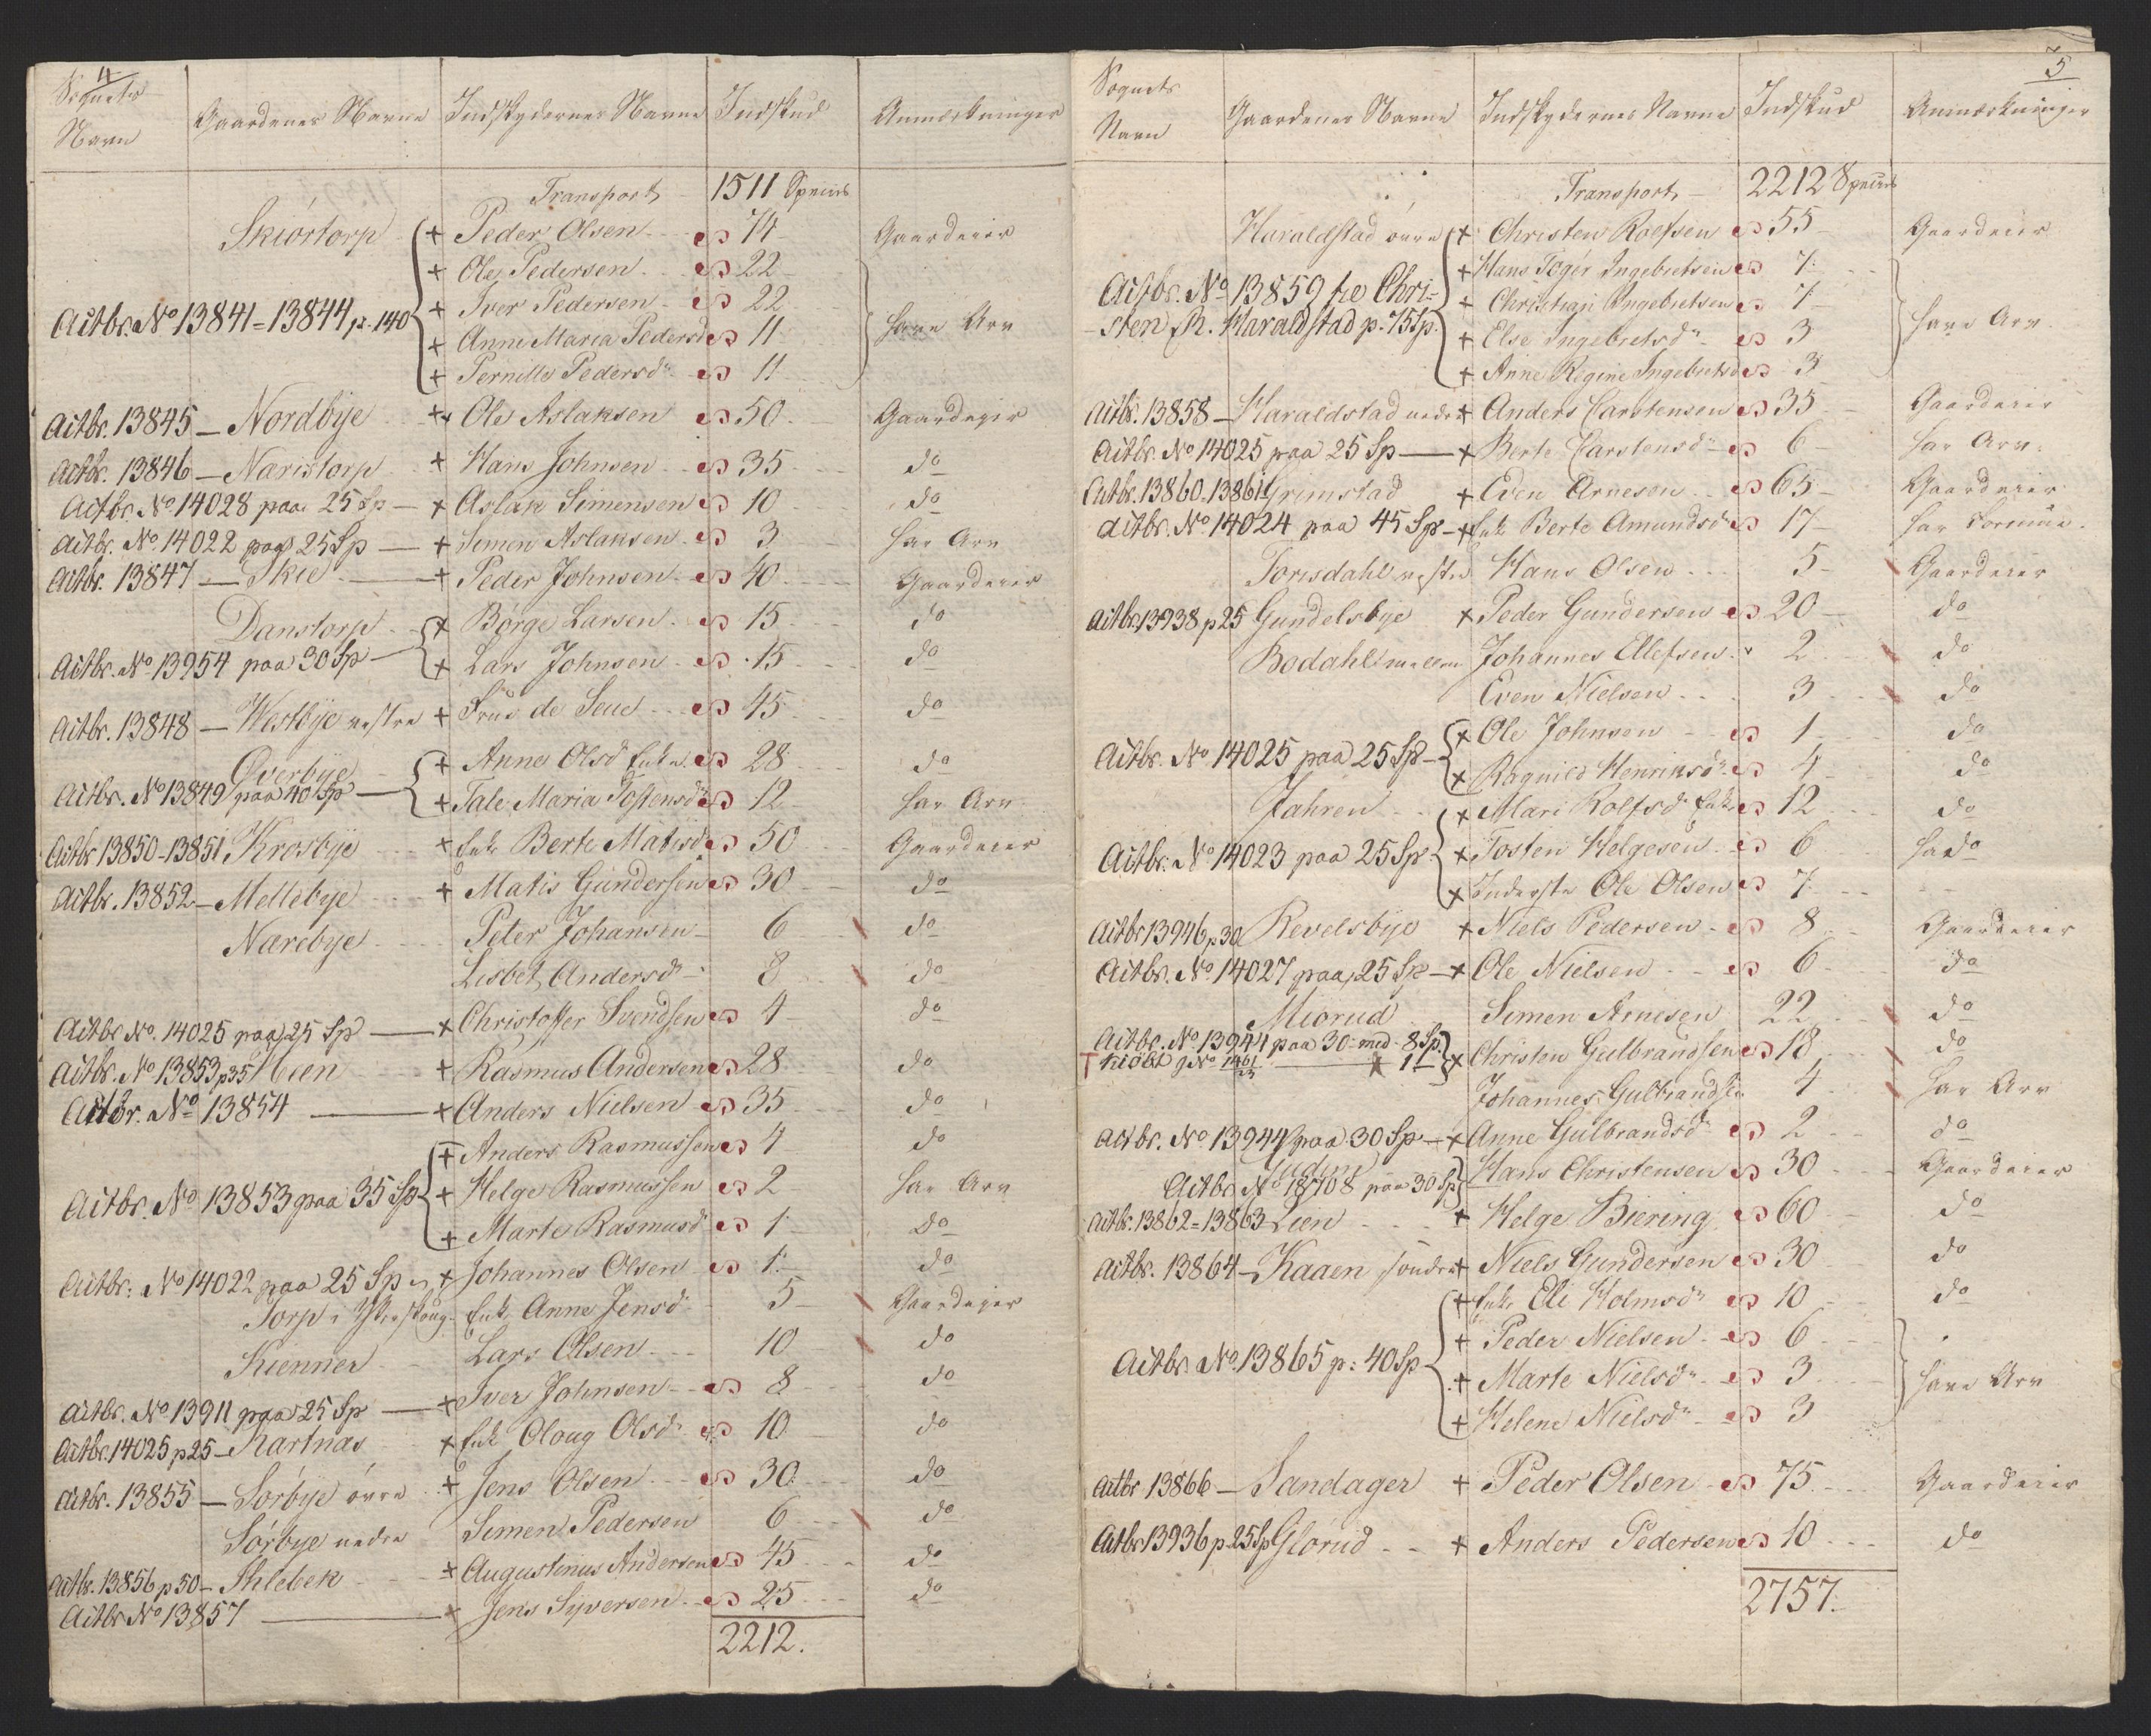 4
Sognets Navn | Gaardenes Navne | Indskydernes Navne | Indskud | Anmærkninger
Transport - 1511 Species
Skiörtorp + Peder Olsen - 74 - Gaardeier
+ Ole Pedersen - 22
Actbr. No 13841=13844, p. 140 + Iver Pedersen - 22 have Arv
+ Anne Maria Pedersd 11
+ Pernille Pedersdr 11
Actbr. 13845 - Nordbÿe + Ole Aslaksen 50 - Gaardeier
Actbr. 13846 - Naristorp + Hans Johnsen - 35 - do
Actbr. No 14028 paa 25 Sp - + Aslak Simensen 10 - do
Actbr. No 14022 paa 25 Sp - + Simen Aslaksen - 3 har Arv
Actbr. 13847 - Skie - + Peder Johnsen - 40 - Gaardeier
Danstorp + Börge Larsen - 15 - do
Actbr. No 13954 paa 30 Sp - + Lars Johnsen - 15 - do
Actbr. 13848 - Westbÿe vestre + Frue de Seue - 45 - do
Överbÿe - + Anne Olsd Enke 28 - do
Actbr. No 13849 paa 40 Sp - + Tale Maria Tostensdr 12 har Arv
Actbr 13850-13851 Krosbÿe - + Enke Berte Matisd 50 - Gaardeier
Actbr. 13852 - Mellebÿe - + Matis Gundersen 30 - do
Nærebÿe - Peter Johansen - 6 - do
Lisbet Andersdr - 8 - do
Actbr No. 14025 paa 25 Sp - + Christoffer Svendsen 4 - do
Actbr. No 13853 p 35 Mien + Rasmus Andersen 28 - do
Actbr. No 13854 - + Anders Nielsen 35 - do
+ Anders Rasmussen 4 - do
Actbr. No 13853 paa 35 Sp + Helge Rasmussen 2 - har Arv
+ Marte Rasmusd 1 - do
Actbr. No 14022 paa 25 Sp - + Johannes Olsen 1 - do
Torp i Enke Anne Jensd - 5 - Gaardeier
Kienner - Lars Olsen - 10 - do
Actbr. No 13911 paa 25 Sp - + Iver Johnsen - 8 - do
Actbr. 14025 p 25 - Kartnas + Enke Oloug Olsdr 10 - do
Actbr. 13855 - Sörbÿe övre + Jens Olsen - 30 - do
Sörbye nedre Simen Pedersen 6 - do
Actbr. 13856 p 50 - Shlebek - + Augustinus Andersen 45 - do
Actbr No 13857 - + Jens Syversen - 25 - do
2212.
5
Sognets Navn | Gaardenes Navne | Indskydernes Navne | Indskud | Anmærkninger
Transport - 2212 Species
Haraldstad övre + Christen Rolfsen 55 - Gaardeier
+ Hans Togér Ingebretsen 7
Actbr. No 13859 til Chri= + Christian Ingebretsen 7
-sten R. Haraldstad p. 75 Sp. + Else Ingebretsdr 3 have Arv.
+ Anne Regine Ingebretsd 3
Actbr. 13858 - Haraldstad nedre + Anders Carstensen 35 - Gaardeier
Actbr. No 14025 paa 25 Sp - + Berte Carstensdr 6 har Arv.
Actbr. 13860.13861 Grimstad + Eden Arnesen - 65 - Gaardeier
Actbr. No 14024 paa 45 Sp - + Enke Berte Amundsdr 17 - har Formue.
Torisdahl vestre Hans Olsen - 5 - Gaardeier
Actbr. 13938 p 25 Gundelsbye + Peder Gundersen 20 - do
Bodahl mellem Johannes Ellefsen 2 - do
Even Nielsen - 3 - do
+ Ole Johnsen - 1 - do
Actbr. No 14025 paa 25 Sp - + Ragnild Henriksdr 4 - do
Jahren - + Mari Rolfsdr Enke 12 - do
Actbr. No 14023 paa 25 Sp. + Tosten Helgesen 6 har do
+ Inderste Ole Olsen 7 -
Actbr 13946 p 30 Revelsbÿe + Niels Pedersen - 8 - Gaardeier
Actbr. No 14027 paa 25 Sp - + Ole Nielsen - 6 - do
Miorud Simen Arnesen 22 - do
Actbr. No 13944 paa 30 med 8 Sp. + Christen Gulbrandsen 18 - do
Johannes Gulbrandsen 4 har Arv
Actbr. No 13944 paa 30 Sp - + Anne Gulbrandsdr 2 - do
Judim Hans Christensen 30 - Gaardeier
Actbr No 18708 paa 30 Sp
Actbr. 13862=13863 Lien - + Helge Biering 60 - do
Actbr. 13864 - Kaaen söndre + Niels Gundersen 30 - do
+ Enke Eli Holmsdr 10 - do
+ Peder Nielsen - 6
Actbr. No 13865 p: 40 Sp + Marte Nielsdr - 3 have Arv
+ Helene Nielsdr - 3
Actbr 13866 - Sandager + Peder Olsen 75 - Gaardeier
Actbr 13936 p 25 Sp Glörud - + Anders Pedersen 10 - do
2757.